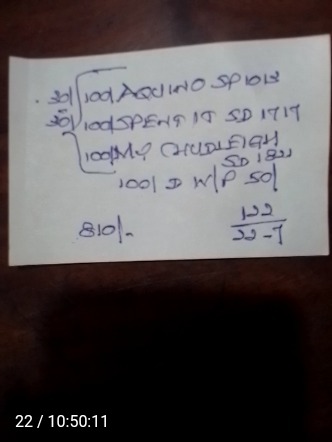 30/ 100/ AQUINO SP 1013
30/ 100/ SPENT IT SD 1717
100/ MY
SD 1821
100/ D W/P 50/
810/-
122
22-7
22 / 10:50:11